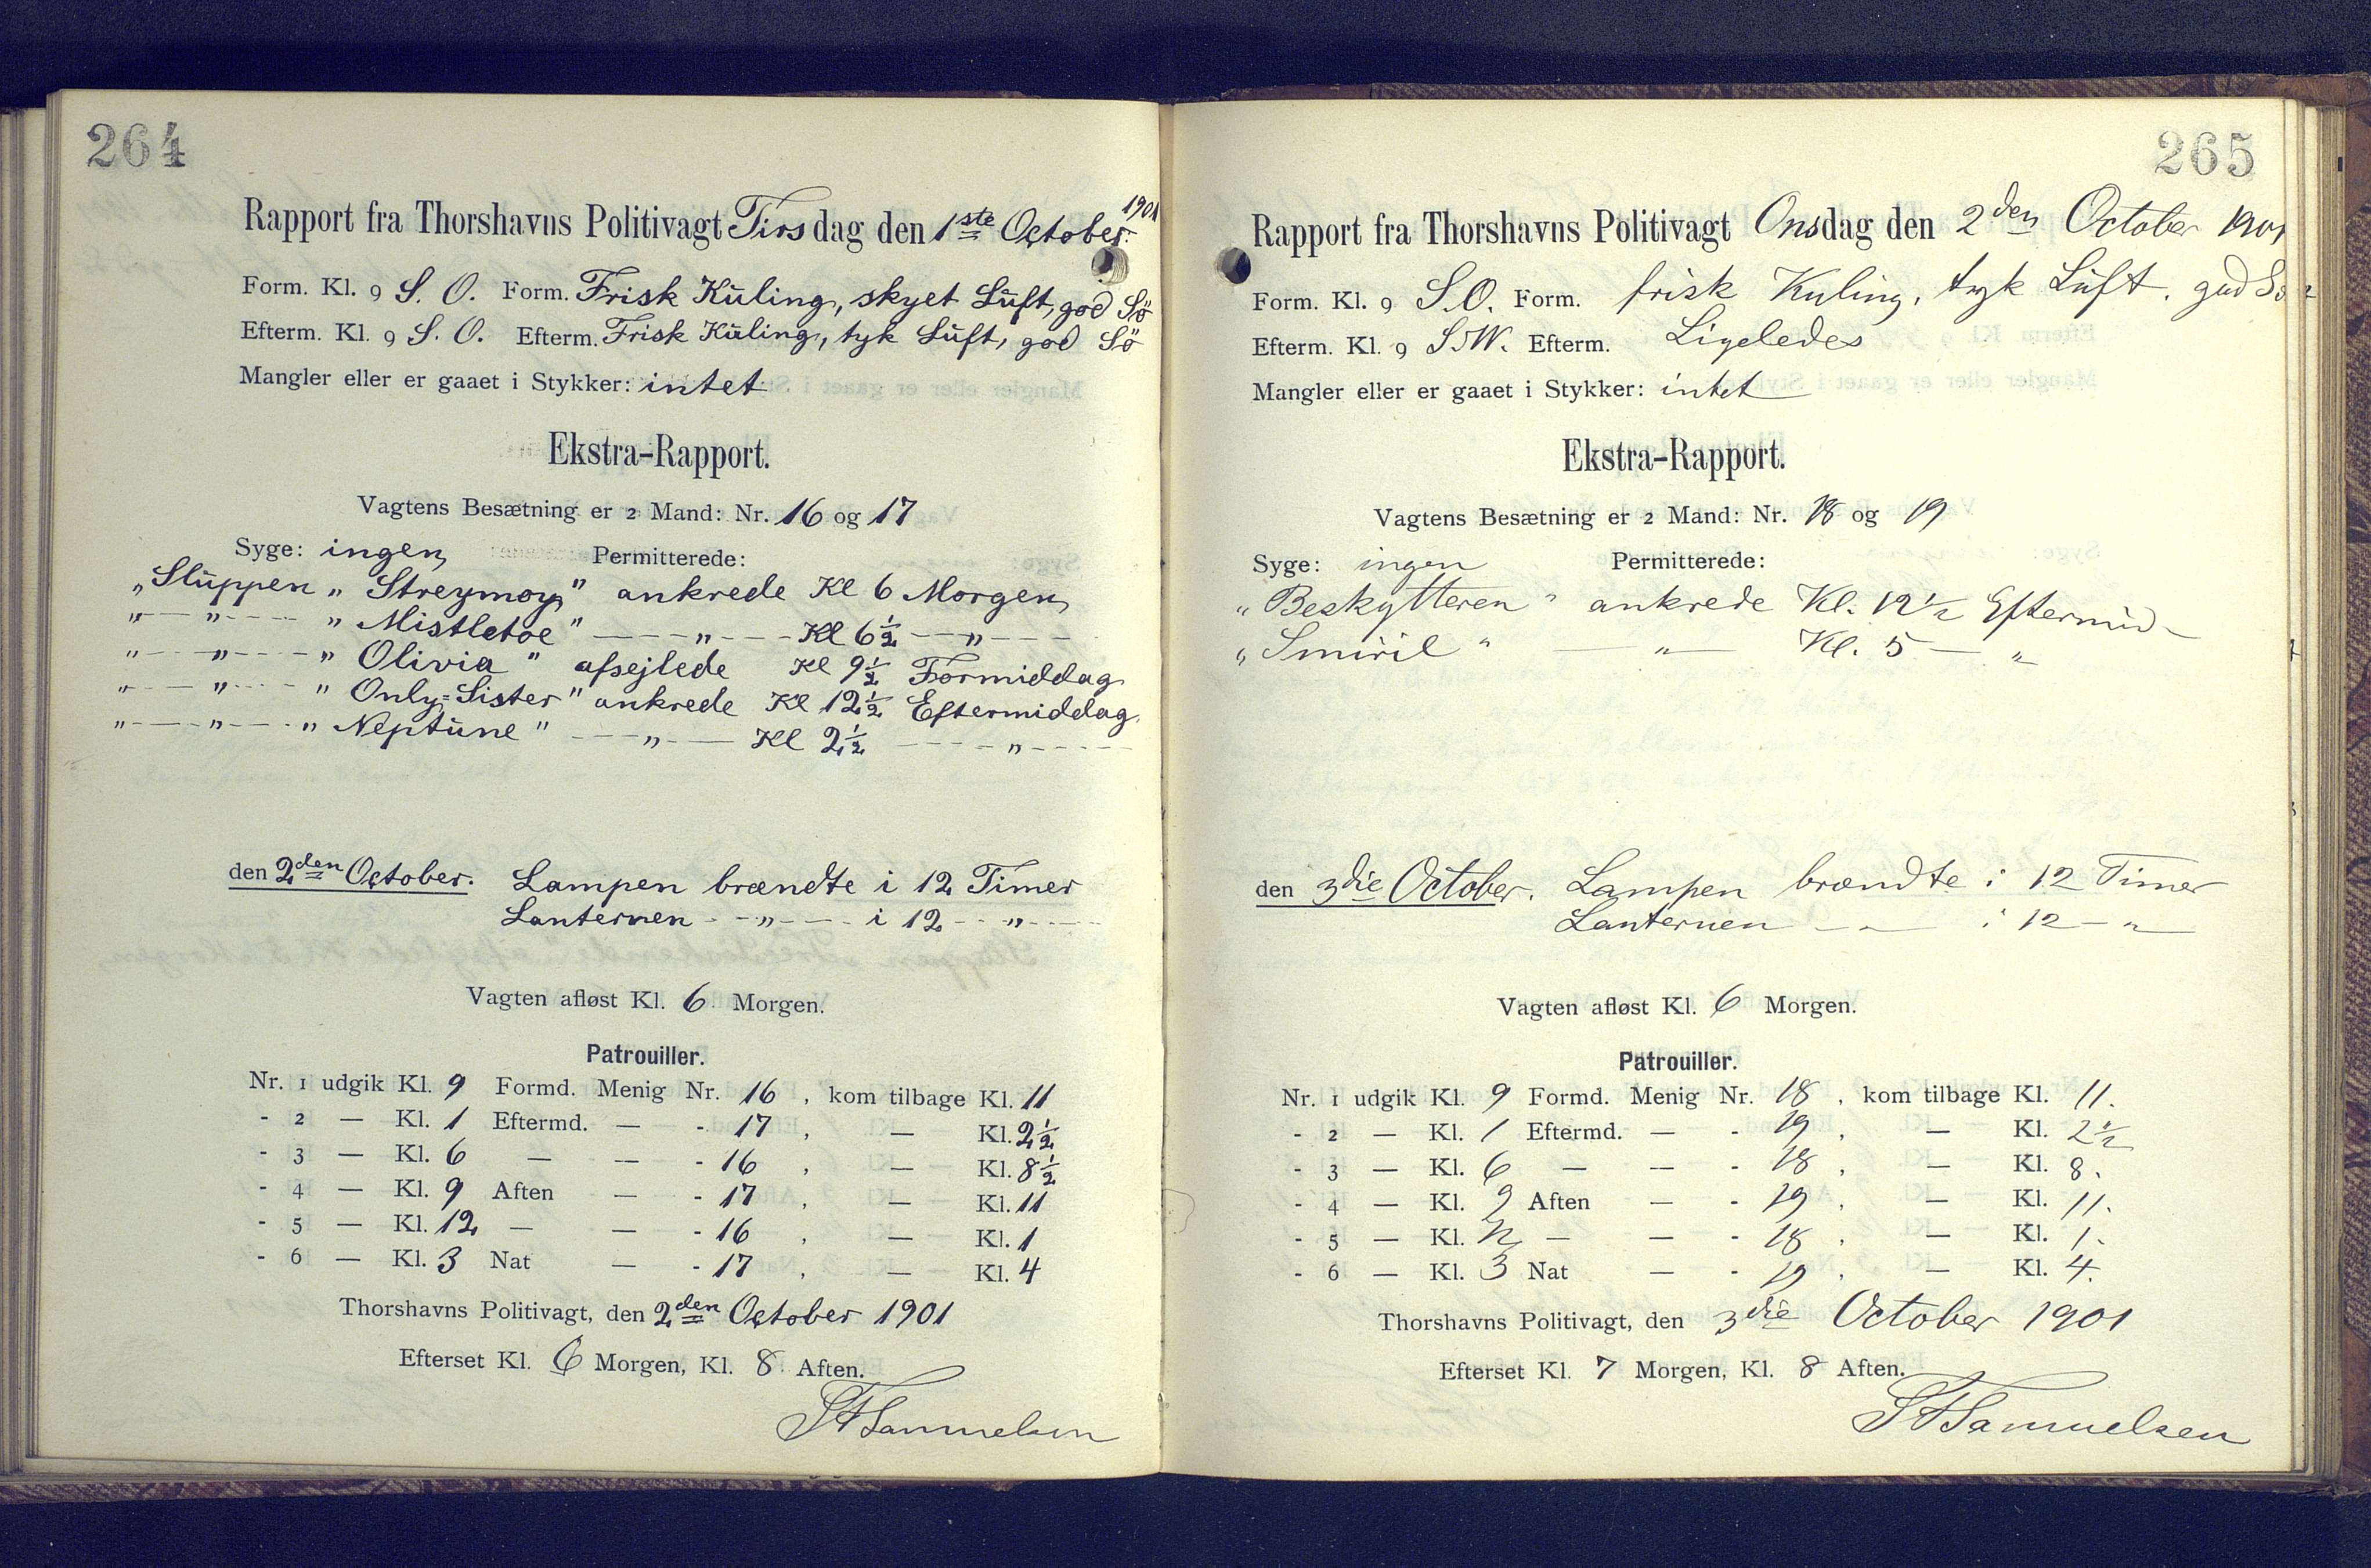 264
Rapport fra Thorshavns Politivagt Tirsdag den 1ste October. 1901
Form. Kl. 9 S. O. Form. Frisk Kuling, skyet Luft, god Sö
Efterm. Kl. 9 S. O. Efterm. Frisk Kuling, tyk Luft, god Sö
Mangler eller er gaaet i Stykker: intet
Ekstra-Rapport.
Vagtens Besætning er 2 Mand: Nr. 16 og 17
Syge: ingen Permitterede:
„Sluppen „ Streymoy" ankrede Kl 6 Morgen
" — " — " Mistletoe" — " — Kl 6½ — " —
" — " — " Olivia " afsejlede Kl 9½ Formiddag
" — " — " Only=Sister" ankrede Kl 12½ Eftermiddag
" — " — " Neptune" — " — Kl 2½ — " —
den 2den October. Lampen brændte i 12 Timer
Lanternen — " — i 12 — " —
Vagten afløst Kl. 6 Morgen.
Patrouiller.
Nr. 1 udgik Kl. 9 Formd. Menig Nr. 16, kom tilbage Kl. 11
- 2 — Kl. 1 Eftermd. — - 17, — Kl. 2½
- 3 — Kl. 6 — — - 16, — Kl. 8½
- 4 — Kl. 9 Aften — - 17, — Kl. 11
- 5 — Kl. 12 — — - 16, — Kl. 1
- 6 — Kl. 3 Nat — - 17, — Kl. 4
Thorshavns Politivagt, den 2den October 1901
Efterset Kl. 6 Morgen, Kl. 8 Aften.
Samuelsen
265
Rapport fra Thorshavns Politivagt Onsdag den 2den October 1901
Form. Kl. 9 S.O. Form. frisk Kuling, tyk Luft. god Sö
Efterm. Kl. 9 S.W. Efterm. Ligeledes
Mangler eller er gaaet i Stykker: intet
Ekstra-Rapport.
Vagtens Besætning er 2 Mand: Nr. 18 og 19
Syge: ingen Permitterede:
„Beskytteren" ankrede Kl. 12½ Eftermid—
„Smiril " — " — Kl. 5 — "
den 3die October. Lampen brændte i 12 Timer
Lanternen — " — i 12 — " —
Vagten afløst Kl. 6 Morgen.
Patrouiller.
Nr. 1 udgik Kl. 9 Formd. Menig Nr. 18, kom tilbage Kl. 11.
- 2 — Kl. 1 Eftermd. — - 19, — Kl. 2½
- 3 — Kl. 6 — — - 18, — Kl. 8.
- 4 — Kl. 9 Aften — - 19, — Kl. 11.
- 5 — Kl. 12 — — - 18, — Kl. 1.
- 6 — Kl. 3 Nat — - 19, — Kl. 4.
Thorshavns Politivagt, den 3die October 1901
Efterset Kl. 7 Morgen, Kl. 8 Aften.
Samuelsen